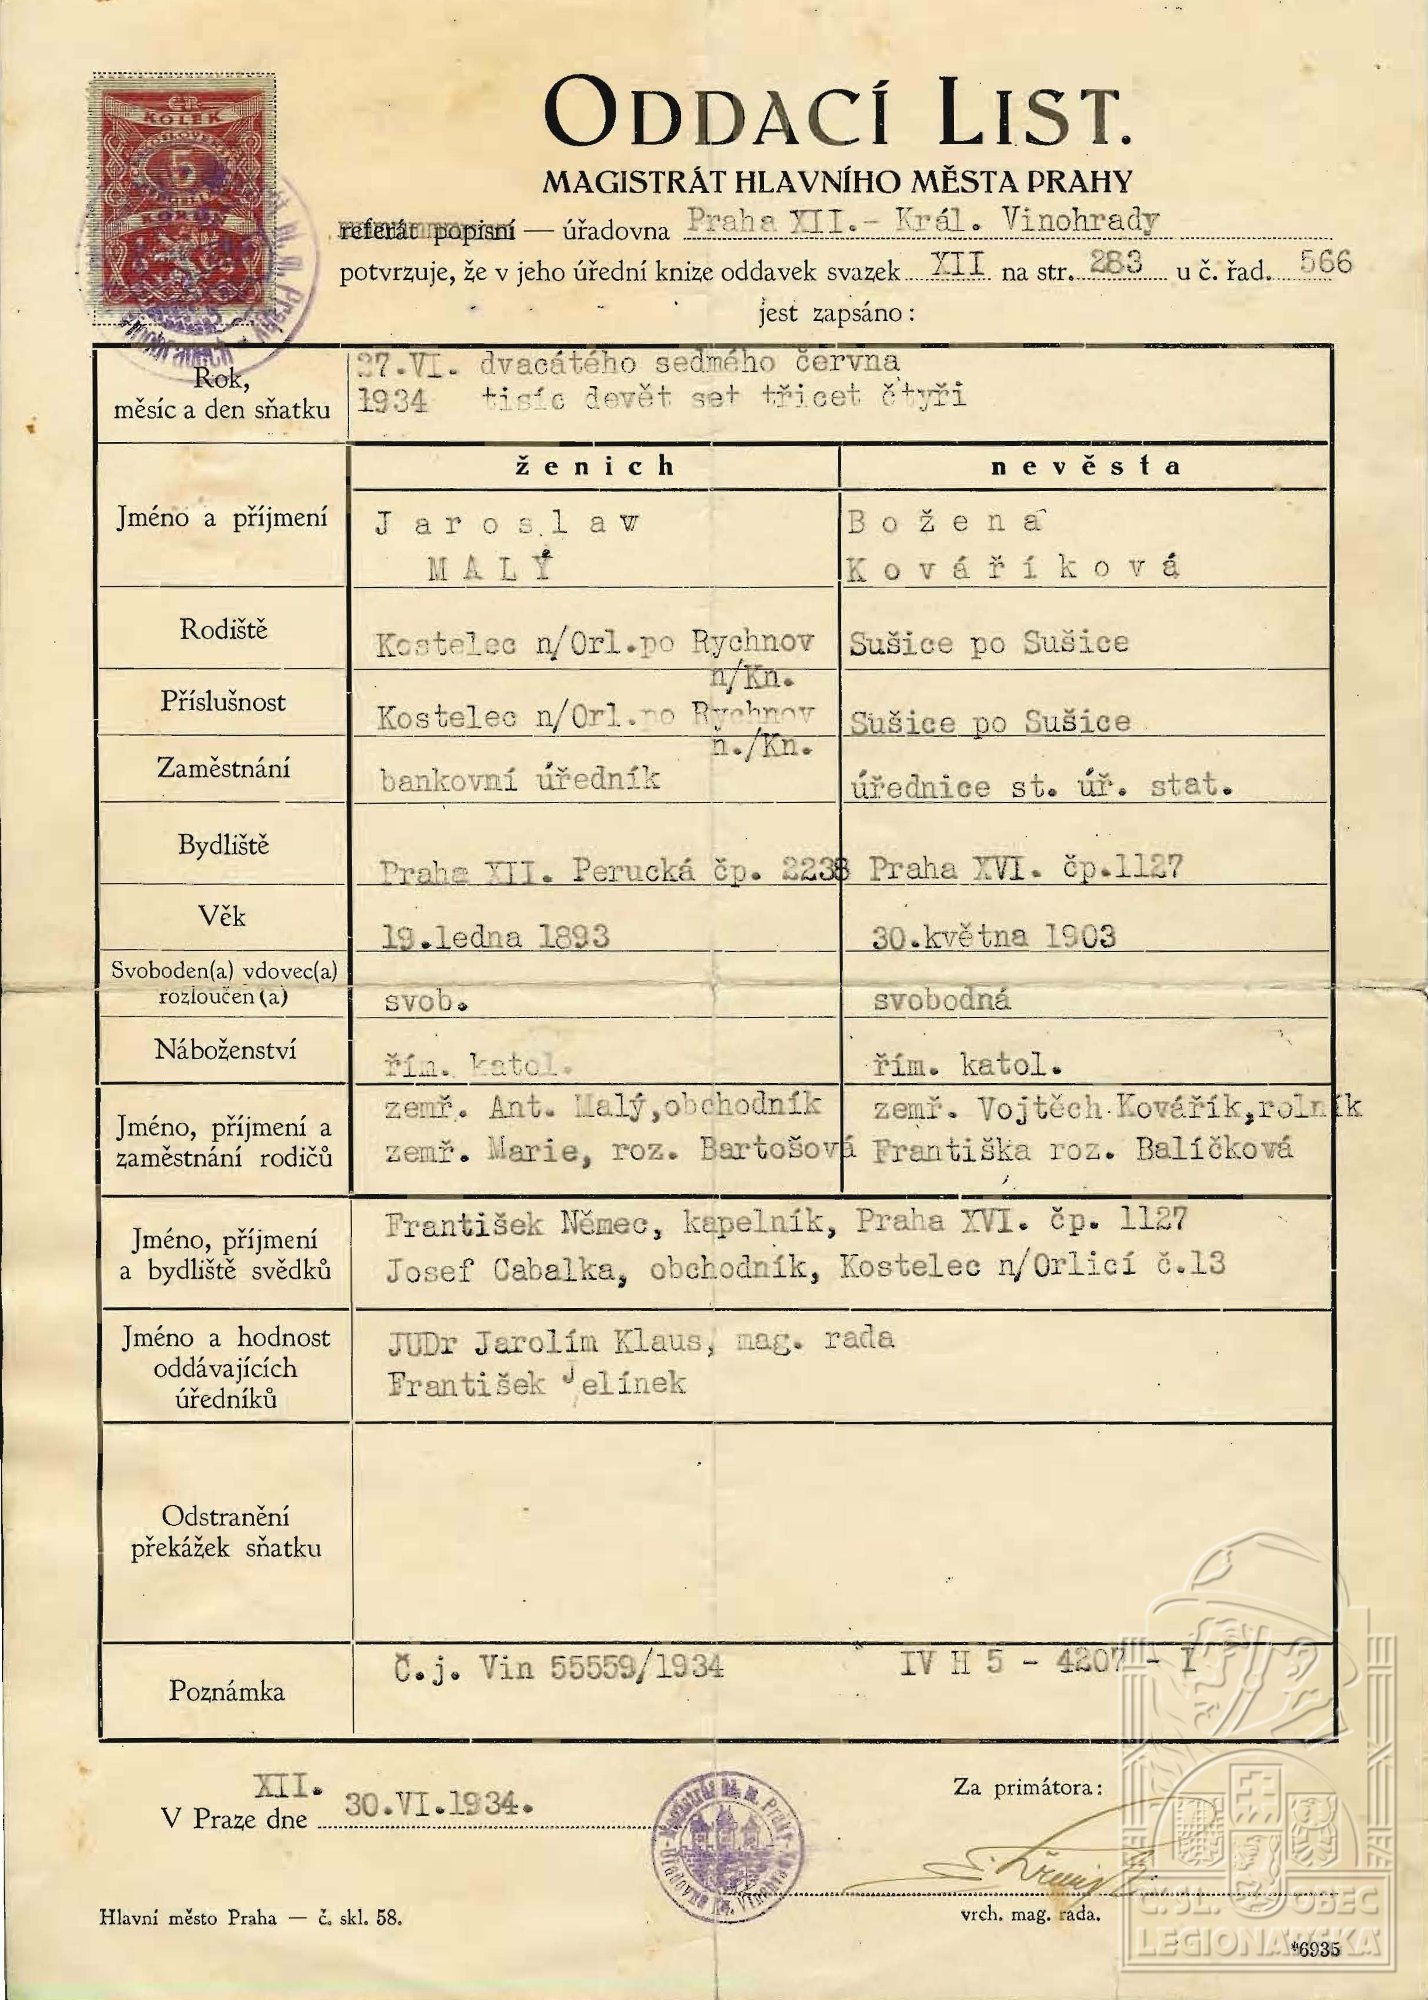 ČR
KOLEK
5
ODDACÍ LIST.
MAGISTRÁT HLAVNÍHO MĚSTA PRAHY
referát popisní — úřadovna Praha XII.- Král. Vinohrady
potvrzuje, že v jeho úřední knize oddavek svazek XII na str. 283 u č. řad. 566
jest zapsáno:
Rok,
měsíc a den sňatku
27.VI. dvacátého sedmého června
1934 tisíc devět set třicet čtyři
ženich nevěsta
Jméno a příjmení
Jaroslav Božena
MALÝ Kováříková
Rodiště Kostelec n/Orl.po Rychnov n/Kn. Sušice po Sušice
Příslušnost Kostelec n/Orl.po Rychnov n./Kn. Sušice po Sušice
Zaměstnání bankovní úředník úřednice st. úř. stat.
Bydliště Praha XII. Perucká čp. 2238 Praha XVI. čp.1127
Věk 19.ledna 1893 30.května 1903
Svoboden(a) vdovec(a)
rozloučen(a) svob. svobodná
Náboženství řím. katol. řím. katol.
Jméno, příjmení a
zaměstnání rodičů
zemř. Ant. Malý,obchodník zemř. Vojtěch Kovářík,rolník
zemř. Marie, roz. Bartošová Františka roz. Balíčková
Jméno, příjmení
a bydliště svědků
František Němec, kapelník, Praha XVI. čp. 1127
Josef Cabalka, obchodník, Kostelec n/Orlicí č.13
Jméno a hodnost
oddávajících
úředníků
JUDr Jarolím Klaus, mag. rada
František Jelínek
Odstranění
překážek sňatku
Poznámka
Č.j. Vin 55559/1934 IV H 5 - 4207 - I
XII.
V Praze dne 30.VI.1934.
Za primátora:
vrch. mag. rada.
Hlavní město Praha — č. skl. 58.
*6935
Č. SL. OBEC
LEGIONÁŘSKÁ